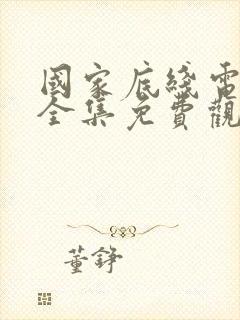 國家底綫電
全集免費觀
董錚